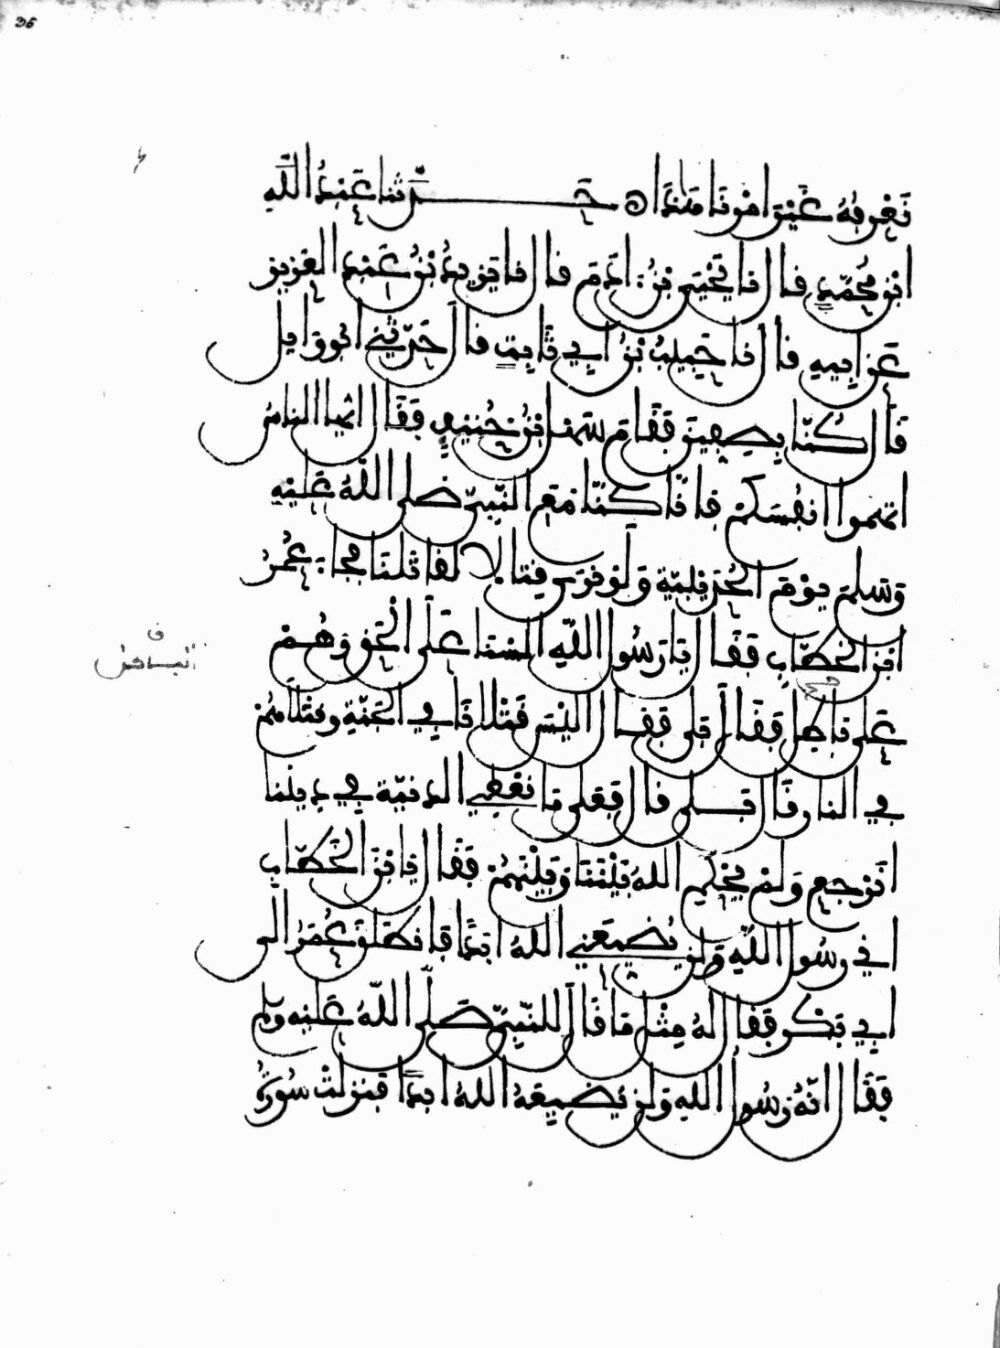 36
نَعْرِفُهُ غَيْرَ امْرِنَا هَذَا ۞ حَدَّثَنا عَبْدُ اللَّهِ
ابْنُ مُحَمَّدٍ قال نا يَحْيَى بْنُ ادَمَ قال نا يَزِيدُ بْنُ عَبْدِ العَزِيزِ
عَن ابِيهِ قال نا حَبِيبُ بْنُ أَبِي ثَابِتٍ قال حَدَّثَنِي ابُو وَايِل
قَال كُنَّا بِصِفِّينَ فَقَامَ سَهْلُ ابْنُ حُنَيْفٍ فَقَال ايُّها الناسُ
اتَّهِموا انفُسَكُمْ فانَّا كُنَّا مَعَ النَّبِيِّ صَلى اللَّهُ عَلَيْهِ
وَسَلم يَوْمَ الحُدَيْبِيَةِ وَلَوْ نَرى قِتالا لَقاتَلْنَا فجاءَ عُمَرُ
ابْنُ الخَطّابِ فَقَال يا رَسُول اللّهِ السْنَا عَلَى الْحَقِّ وَهُمْ
عَلى باطِل فَقَال بَلى فَقال الَيْسَ قَتْلانَا فِي الجَنَّةِ وقتْلاهُمْ
فِي النارِ قَال بَلى قال فَعَلى مَا نُعْطِي الدنِيَّةَ فِي دِينِنا
انَرْجِعُ وَلَمْ يَحْكُمِ اللهُ بَيْنَنَا وَبَيْنَهُمْ فَقَال يا ابْنَ الخَطّابِ
اني رسُول اللَّهِ وَلن يُضَيِّعَنِي اللهُ ابَدًا فانطَلَقَ عُمَرُ الَى
ابِي بَكْرٍ فَقَال لَهُ مِثْل مَا قَال لِلنَّبِيِّ صَلَّى اللَّهُ عَلَيْهِ وسلم
فَقَال انَّهُ رَسُول اللهِ وَلن يُضَيِّعَهُ اللهُ ابَدًا فنَزلتْ سُورَةُ